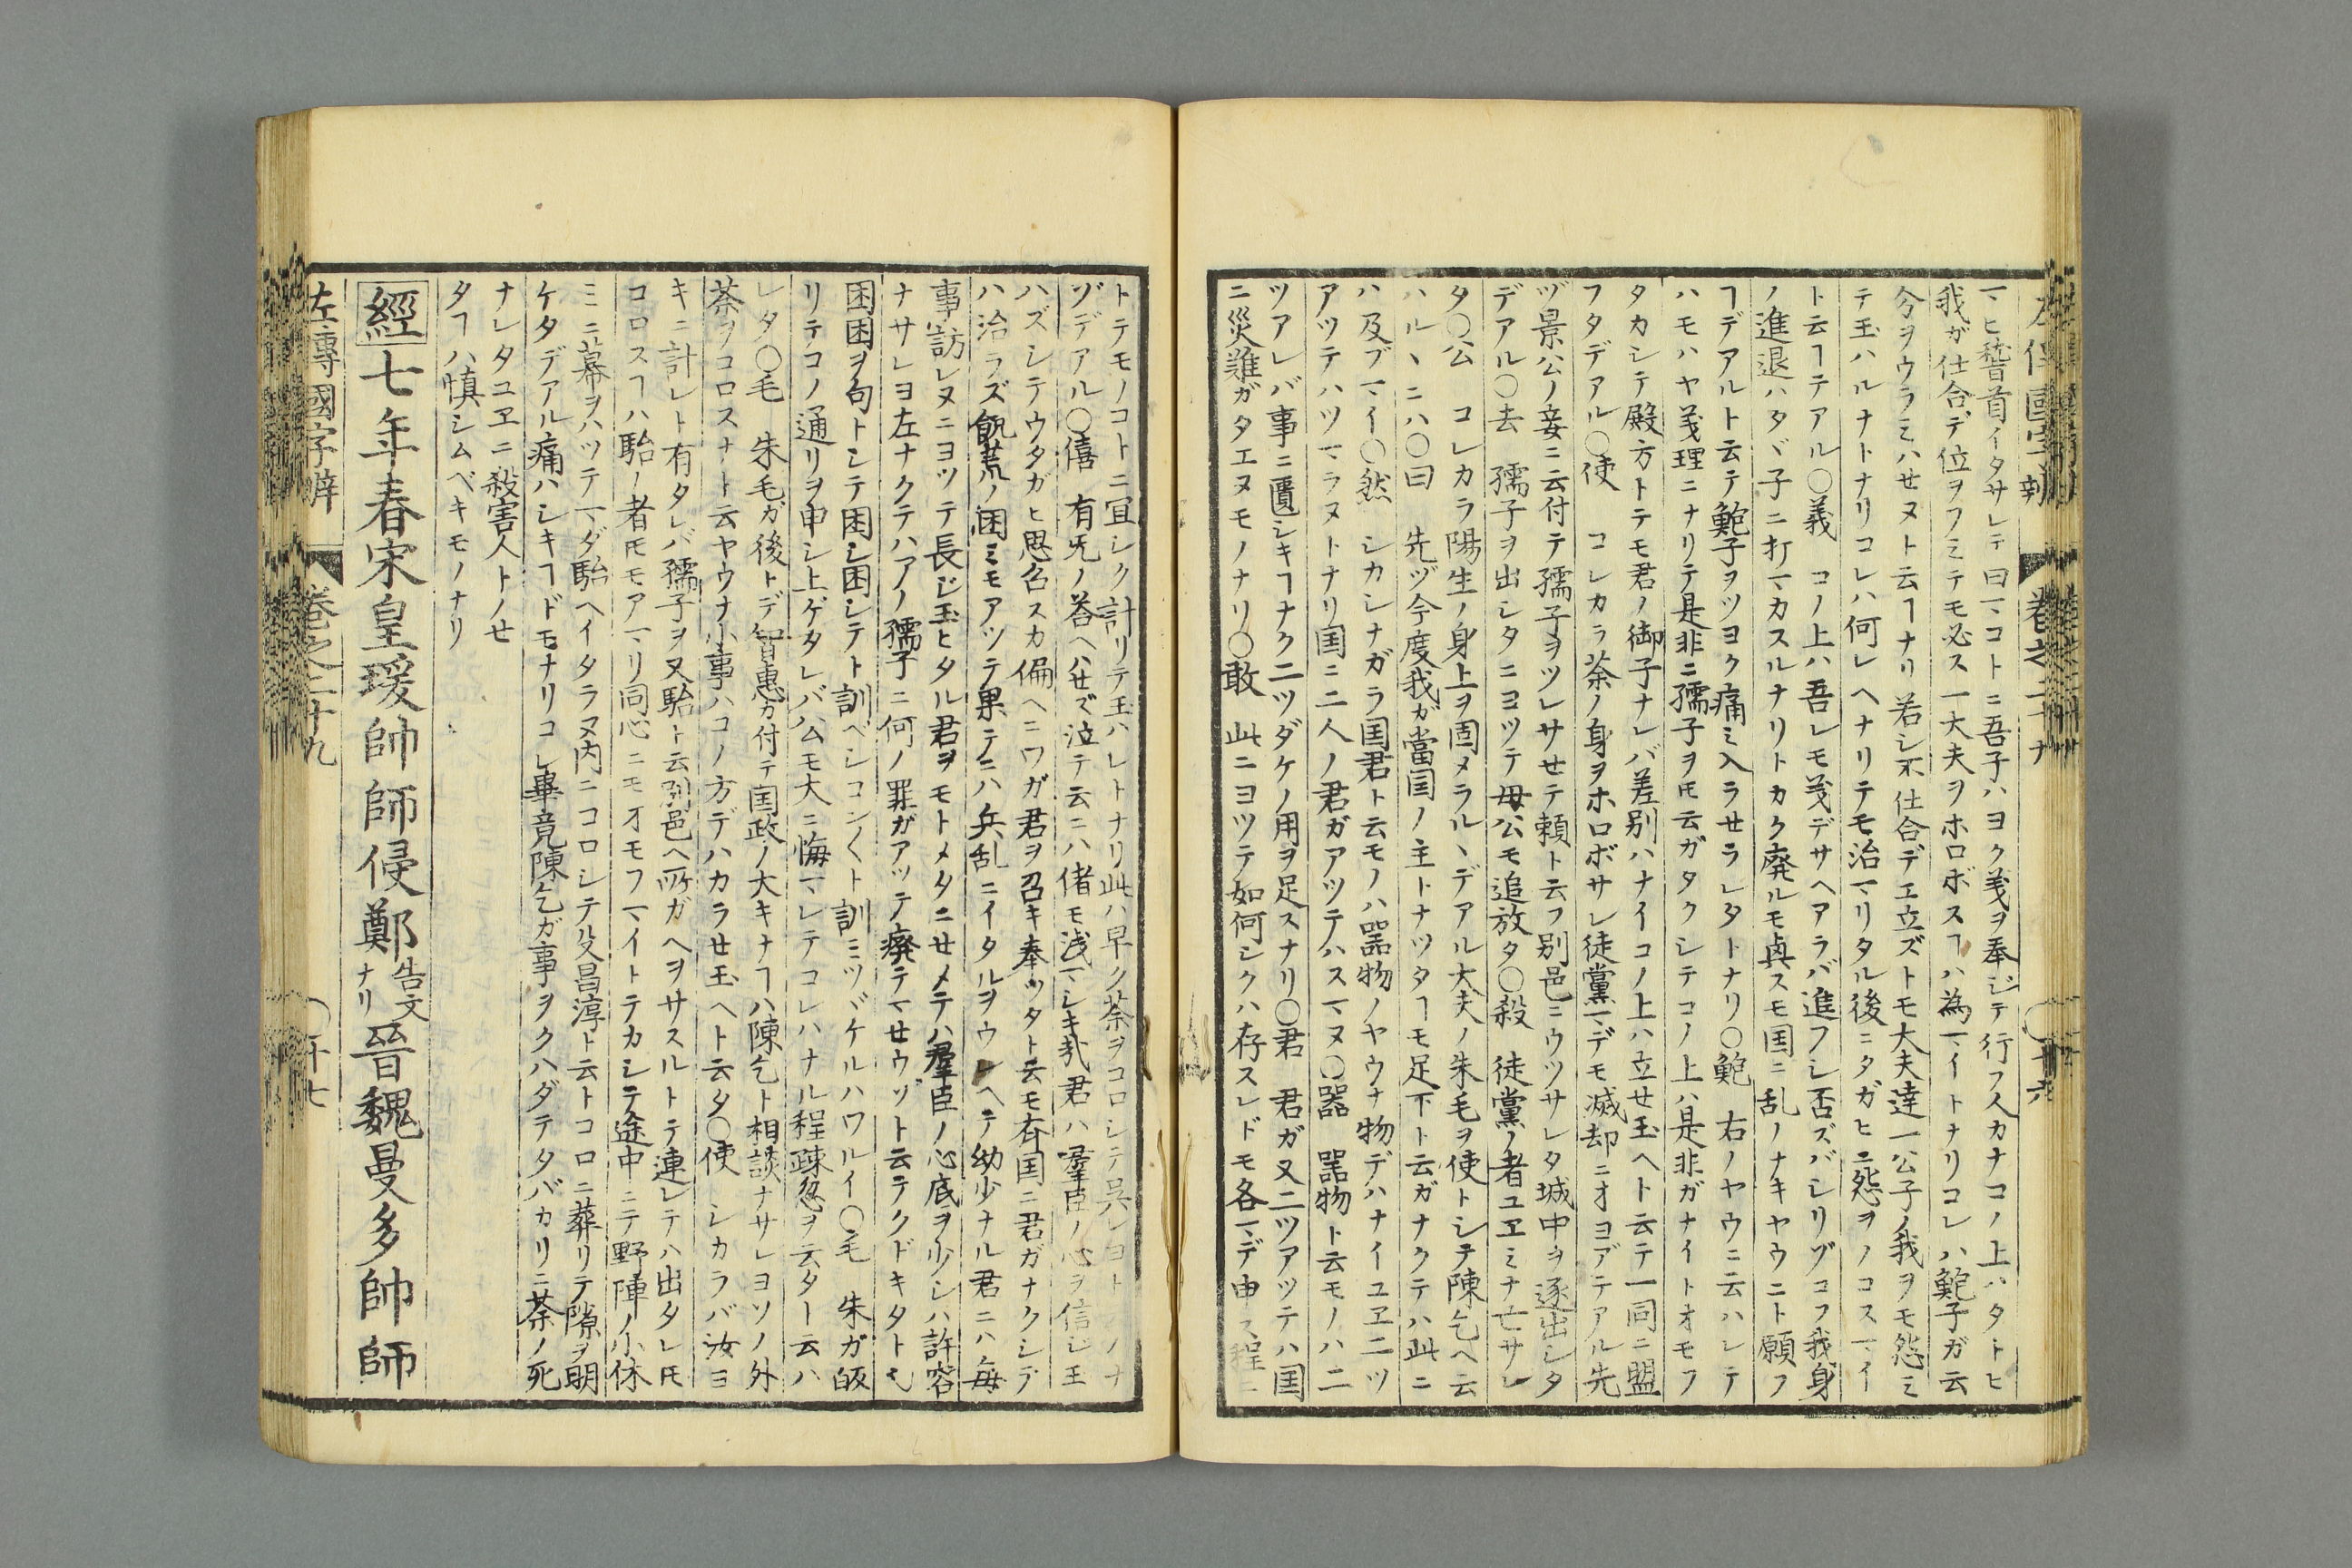 マヒ稽首イタサレテ曰マコトニ吾子ハヨク義ヲ奉ジテ行フ人カナコノ上ハタトヒ
我ガ仕合デ位ヲフミテモ必ス一大夫ヲホロボスヿハ為マイトナリコレハ鮑子ガ云
分ヲウラミハセヌト云ヿナリ若シ不仕合デエ立ズトモ大夫達一公子ノ我ヲモ怨ミ
テ玉ハルナトナリコレハ何レヘナリテモ治マリタル後ニタガヒニ怨ヲノコスマイ
ト云ヿテアル〇義　コノ上ハ吾レモ義デサヘアラバ進フシ否ズバシリゾコフ我身
ノ進退ハタヾ子ニ打マカスルナリトカク廃ルモ興スモ国ニ乱ノナキヤウニト願フ
ヿデアルト云テ鮑子ヲツヨク痛ミ入ラセラレタトナリ〇鮑　右ノヤウニ云ハレテ
ハモハヤ義理ニナリテ是非ニ孺子ヲトモ云ガタクシテコノ上ハ是非ガナイトオモフ
タカシテ殿方トテモ君ノ御子ナレバ差別ハナイコノ上ハ立セ玉ヘト云テ一同ニ盟
フタデアル〇使　コレカラ荼ノ身ヲホロボサレ徒黨マデモ滅却ニオヨブテアル先
ヅ景公ノ妾ニ云付テ孺子ヲツレサセテ頼ト云フ別邑ニウツサレタ城中ヲ逐出シタ
デアル〇去　孺子ヲ出シタニヨツテ母公モ追放タ〇殺　徒黨ノ者ユエミナ亡サレ
タ〇公　コレカラ陽生ノ身上ヲ固メラルヽデアル大夫ノ朱毛ヲ使トシテ陳乞ヘ云
ハルヽニハ〇曰　先ヅ今度我ガ當国ノ主トナツタヿモ足下ト云ガナクテハ此ニ
ハ及ブマイ〇然　シカシナガラ国君ト云モノハ噐物ノヤウナ物デハナイユエ二ツ
アツテハツマラヌトナリ国ニ二人ノ君ガアツテハスマヌ〇噐　噐物ト云モノハ二
ツアレバ事ニ匱シキヿナク二ツダケノ用ヲ足スナリ〇君　君ガ又二ツアツテハ国
ニ災難ガタエヌモノナリ〇敢　此ニヨツテ如何シクハ存スレドモ各マデ申ス程ニ
トテモノコトニ宜シク計リテ玉ハレトナリ此ハ早ク荼ヲコロシテ呉レヨト
ヅデアル〇僖　有无ノ荅ヘハセズ泣テ云ニハ偖モ浅マシキ我君ハ羣臣ノ心ヲ信ジ玉
ハズシテウタガヒ思召スカ偏ヘニワガ君ヲ召キ奉ツタト云モ斉国ニ君ガナクシテ
ハ治ラズ飢荒ノ困ミモアツテ果テニハ兵乱ニイタルヲウレヘテ幼少ナル君ニハ毎
事訪レヌニヨツテ長ジ玉ヒタル君ヲモトメタニセメテハ羣臣ノ心底ヲ少シハ許容
ナサレヨ左ナクテハアノ孺子ニ何ノ罪ガアツテ廃テマセウゾト云テクドキタト也
困困ヲ句トシテ困シ困シテト訓ベシコン〱ト訓ミツヾケルハワルイ〇毛　朱ガ皈
リテコノ通リヲ申シ上ゲタレバ公モ大ニ悔マレテコレハナル程疎忽ヲ云タト云ハ
レタ〇毛　朱毛ガ後トデ智惠ガ付テ国政ノ大キナヿハ陳乞ト相談ナサレヨソノ外
荼ヲコロスナト云ヤウナ小事ハコノ方デハカラセ玉ヘト云タ〇使　シカラバ汝ヨ
キニ計レト有タレバ孺子ヲ又駘ト云別邑ヘ所ガヘヲサスルトテ連レテハ出タレトモ
コロスヿハ駘ノ者トモモアマリ同心ニモオモフマイトテカシテ途中ニテ野陣ノ小休
ミニ幕ヲハツテマダ駘ヘイタラヌ内ニコロシテ殳昌淳ト云トコロニ葬リテ隙ヲ明
ケタデアル痛ハシキヿドモナリコレ畢竟陳乞ガ事ヲクハダテタバカリニ荼ノ死
ナレタユエニ殺害人トノセ
タヿハ慎シムベキモノナリ
經七年春宋皇瑗帥師侵鄭告文ナリ晉魏曼多帥師
左傳國字辨　巻之二十九　〇十七